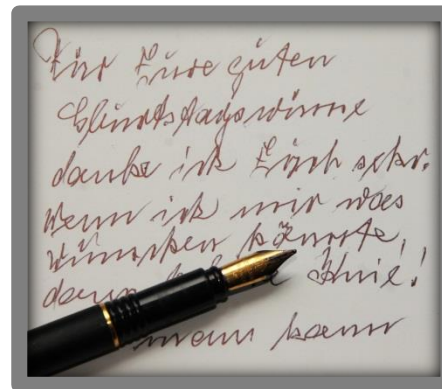 Für Eure guten
Geburtstagswünsche
danke ich Euch sehr.
Wenn ich mir was
wünschen könnte,
dann Knie!
man kann